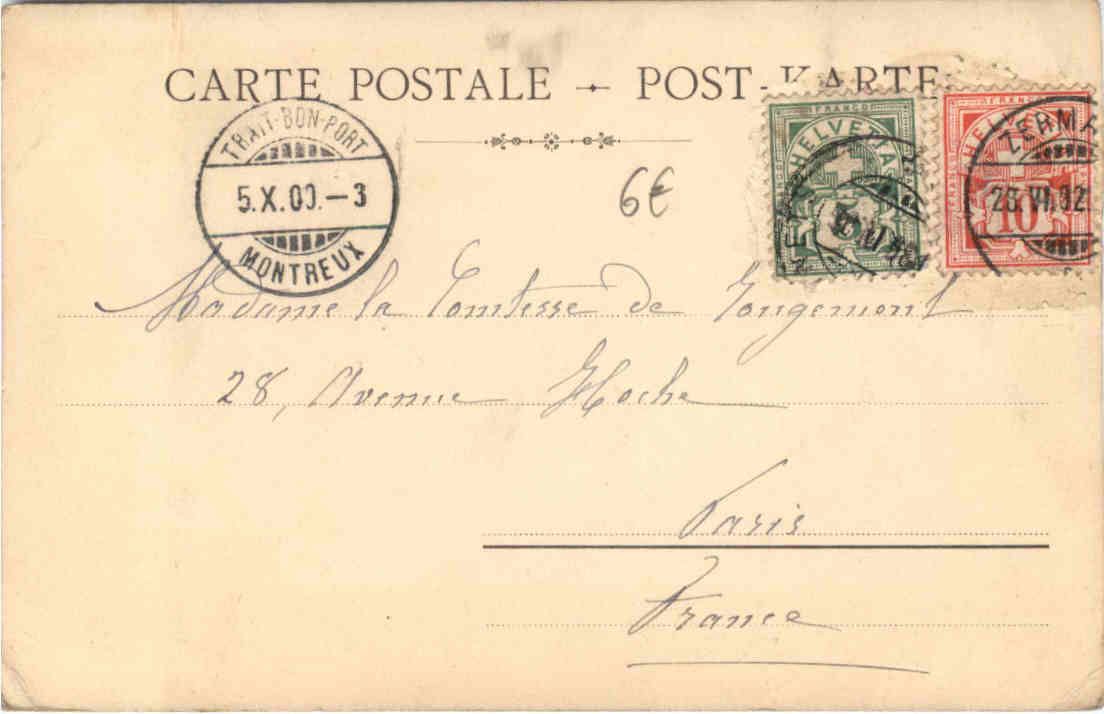 CARTE POSTALE - POST-KARTE
TRAIT-BON-PORT
5.X.00.-3
MONTREUX
6€
FRANCO
HELVETIA
5
FRANCO
HELVETIA
10
ZERMA
26.VI.02.
Madame la Comtesse de Gongemont
28, Avenue Hoche
Paris
France